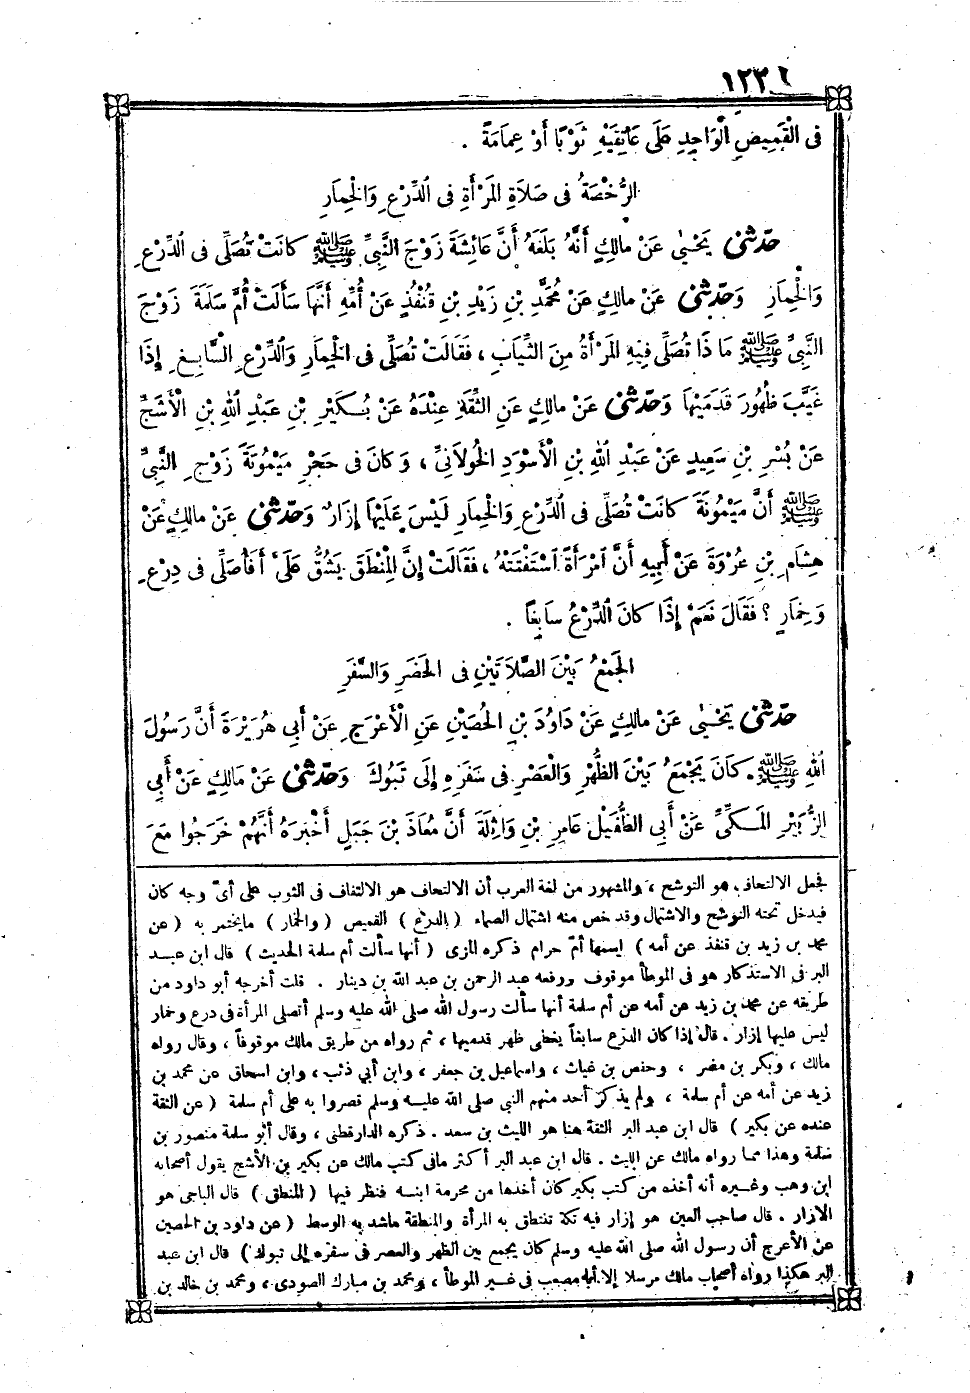 فِى الْقَمِيصِ الْوَاحِدِ عَلَى عَاتِقَيْهِ ثَوْبًا أَوْ عِمَامَةً .
الرُّخْصَةُ فِى صَلَاةِ الْمَرْأَةِ فِى الدِّرْعِ وَالْخِمَارِ
حَدَّثَنِى يَحْيَى عَنْ مَالِكٍ أَنَّهُ بَلَغَهُ أَنَّ عَائِشَةَ زَوْجَ النَّبِىِّ ﷺ كَانَتْ تُصَلِّى فِى الدِّرْعِ
وَالْخِمَارِ وَحَدَّثَنِى عَنْ مَالِكٍ عَنْ مُحَمَّدِ بْنِ زَيْدِ بْنِ قُنْفُذٍ عَنْ أُمِّهِ أَنَّهَا سَأَلَتْ أُمَّ سَلَمَةَ زَوْجَ
النَّبِىِّ ﷺ مَا ذَا تُصَلِّى فِيهِ الْمَرْأَةُ مِنَ الثِّيَابِ ، فَقَالَتْ تُصَلِّى فِى الْخِمَارِ وَالدِّرْعِ السَّابِغِ إِذَا
غَيَّبَ ظُهُورَ قَدَمَيْهَا وَحَدَّثَنِى عَنْ مَالِكٍ عَنِ الثِّقَةِ عِنْدَهُ عَنْ بُكَيْرِ بْنِ عَبْدِ اللهِ بْنِ الْأَشَجِّ
عَنْ بُسْرِ بْنِ سَعِيدٍ عَنْ عَبْدِ اللهِ بْنِ الْأَسْوَدِ الْخَوْلَانِىِّ ، وَكَانَ فِى حَجْرِ مَيْمُونَةَ زَوْجِ النَّبِىِّ
ﷺ أَنَّ مَيْمُونَةَ كَانَتْ تُصَلِّى فِى الدِّرْعِ وَالْخِمَارِ لَيْسَ عَلَيْهَا إِزَارٌ وَحَدَّثَنِى عَنْ مَالِكٍ عَنْ
هِشَامِ بْنِ عُرْوَةَ عَنْ أَبِيهِ أَنَّ امْرَأَةً اسْتَفْتَتْهُ ، فَقَالَتْ إِنَّ الْمِنْطَقَ يَشُقُّ عَلَىَّ أَفَأُصَلِّى فِى دِرْعٍ
وَخِمَارٍ ؟ فَقَالَ نَعَمْ إِذَا كَانَ الدِّرْعُ سَابِغًا .
الْجَمْعُ بَيْنَ الصَّلَاتَيْنِ فِى الْحَضَرِ وَالسَّفَرِ
حَدَّثَنِى يَحْيَى عَنْ مَالِكٍ عَنْ دَاوُدَ بْنِ الْحُصَيْنِ عَنِ الْأَعْرَجِ عَنْ أَبِى هُرَيْرَةَ أَنَّ رَسُولَ
اللهِ ﷺ كَانَ يَجْمَعُ بَيْنَ الظُّهْرِ وَالْعَصْرِ فِى سَفَرِهِ إِلَى تَبُوكَ وَحَدَّثَنِى عَنْ مَالِكٍ عَنْ أَبِى
الزُّبَيْرِ الْمَكِّىِّ عَنْ أَبِى الطُّفَيْلِ عَامِرِ بْنِ وَاثِلَةَ أَنَّ مُعَاذَ بْنَ جَبَلٍ أَخْبَرَهُ أَنَّهُمْ خَرَجُوا مَعَ
فجعل الالتحاف هو التوشح ، والمشهور من لغة العرب أن الالتحاف هو الالتفاف فى الثوب على أىّ وجه كان
فيدخل تحته التوشح والاشتمال وقد خص منه اشتمال الصماء ( الدرع ) القميص ( والخمار ) مايختمر به ( عن
محمد بن زيد بن قنفذ عن أمه ) اسمها أمّ حرام ذكره المزى ( أنها سألت أم سلمة الحديث ) قال ابن عبد
البر فى الاستذكار هو فى الموطأ موقوف ورفعه عبد الرحمن بن عبد الله بن دينار . قلت أخرجه أبو داود من
طريقه عن محمد بن زيد عن أمه عن أم سلمة أنها سألت رسول الله صلى الله عليه وسلم أتصلى المرأة فى درع وخمار
ليس عليها إزار . قال إذا كان الدرع سابغا يغطى ظهر قدميها ، ثم رواه من طريق مالك موقوفا ، وقال رواه
مالك ، وبكر بن مضر ، وحفص بن غياث ، واسماعيل بن جعفر ، وابن أبي ذئب ، وابن اسحاق عن محمد بن
زيد عن أمه عن أم سلمة ، ولم يذكر أحد منهم النبي صلى الله عليه وسلم قصروا به على أم سلمة ( عن الثقة
عنده عن بكير ) قال ابن عبد البر الثقة هنا هو الليث بن سعد . ذكره الدارقطنى ، وقال أبو سلمة منصور بن
سلمة وهذا مما رواه مالك عن الليث . قال ابن عبد البر أكثر مافى كتب مالك عن بكير بن الأشج يقول أصحابه
ابن وهب وغيره أنه أخذه من كتب بكير كان أخذها من مخرمة ابنه فنظر فيها ( المنطق ) قال الباجى هو
الازار . قال صاحب العين هو إزار فيه تكة تنتطق به المرأة والمنطقة ماشد به الوسط ( عن داود بن الحصين
عن الأعرج أن رسول الله صلى الله عليه وسلم كان يجمع بين الظهر والعصر فى سفره إلى تبوك ) قال ابن عبد
البر هكذا رواه أصحاب مالك مرسلا إلا أبا مصعب فى غير الموطأ ، ومحمد بن مبارك الصورى ، ومحمد بن خالد بن